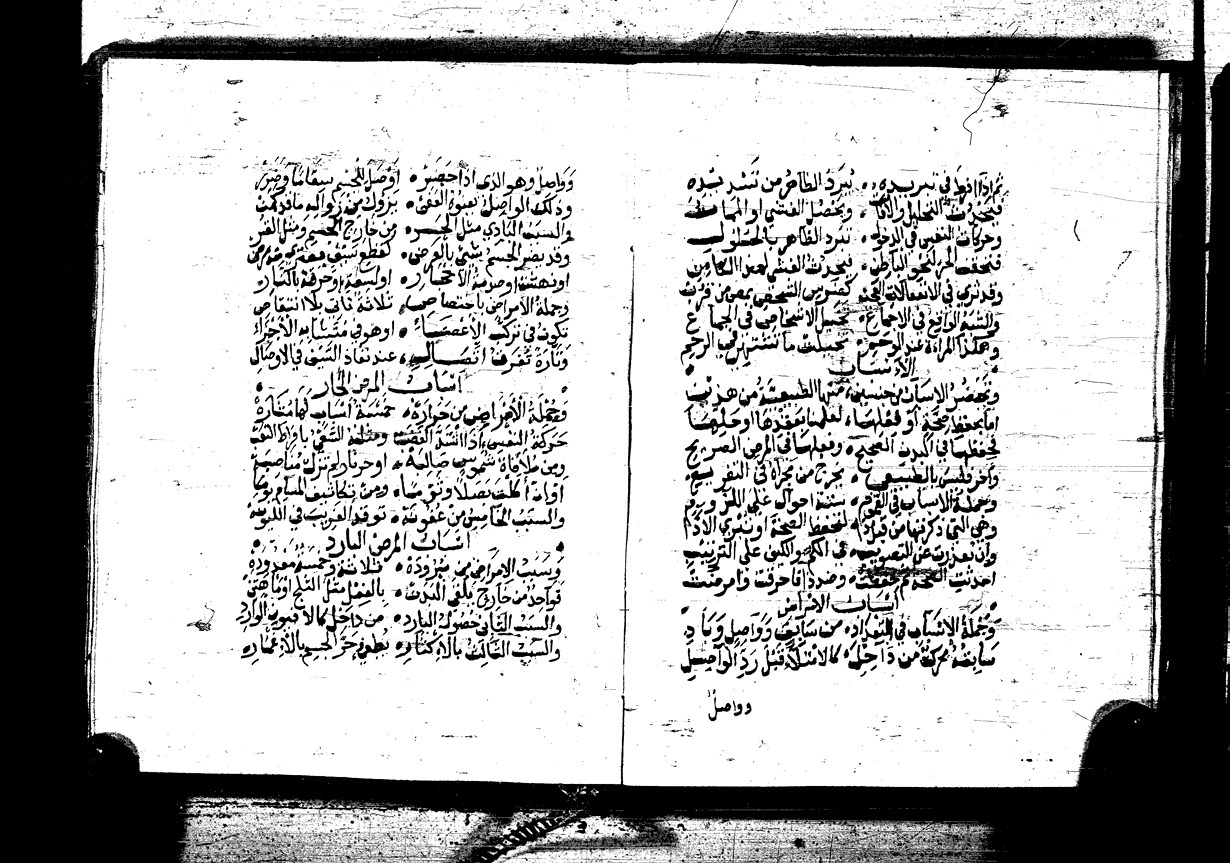 ثم اذا افرط في تبريده • تبرد الظاهر من تشديده
فيحدث التحليل والآفات • ويحصل الغشي او الممات
وحركات النفس في الدخول • تبرد الظاهر بالحصول
فتجذب الحر لنحو الباطن • فيحدث الغشي لهذا الكامن
وقد ترى في الانفعالات
والشبه الواقع في الاجماع • تخيل الاشخاص في الجماع
وهكذا المراة عند الوحم • تخيلت ما تشتهي في الرحم
الاسباب
وتنحصر الاسباب من جنسين • منها الطبيعية من هذين
اما بحفظ صحة او فعلها • لعلمنا بعقدها وحلها
فحفظها في البدن الصحيح • وفعلها في المرض الصريح
وآخر ليس بالطبيعي • يخرج من مجراه في
وجملة الاسباب في القوم • ستة احوال على اللزوم
وهي التي ذكرتها من قبل • لتحفظ الصحة او تبري
وان تعذرت عن التصويب • في الكم والكيف على الترتيب
احدثت الصحة ثم • وضدد اذا حرفت وامرضت
اسباب الامراض
وجملة الاسباب في التعداد • من سابق وواصل وباد
سابقة بحركة من داخل • كالامتلاء قبل رد الواصل
وواصل
وواصل وهو الذي اذا حضر • اوصل للجسم سقاما وضر
وذلك الواصل • يزول من زواله ما
والسبب البادي مثل الحر • من خارج الجسم ومثل القر
وقد يضر الجسم شيء بالعرض • كقطع سيف
او نهشة او صدمة الاحجار • او لسعة او حرقة بالنار
وجملة الامراض باختصاص • ثلاثة فاتى بلا انتقاص
تكون في تركب الاعضاء • او هو في متشابه الاجزاء
وتارة تفرق اتصال • عند نفاذ الشيء في الاوصال
اسباب المرض الحار
وجملة الامراض من حرارة • خمسة اسباب لها مغارة
حركة النفس اذا اشتد الغضب • ومثله الشيء بافراط التعب
ومن ملاقاة شموس صالية • او حر نار لم تزل مناصية
او ان اكلت بصلا وثوما • ومن تكاثيف المسام يوما
والسبب الخامس من عفونة • توقد الغريب في اللدونة
اسباب المرض البارد
وسبب الامراض من برودة • ثلاثة وخمسة معدودة
فواحد من خارج يلقى البدن • بالفعل مثل الثلج او ما
والسبب الثاني حصول البارد • من داخل كالافيون الوارد
والسبب الثالث بالاكثار • يطفي حر الجسم بالاغمار